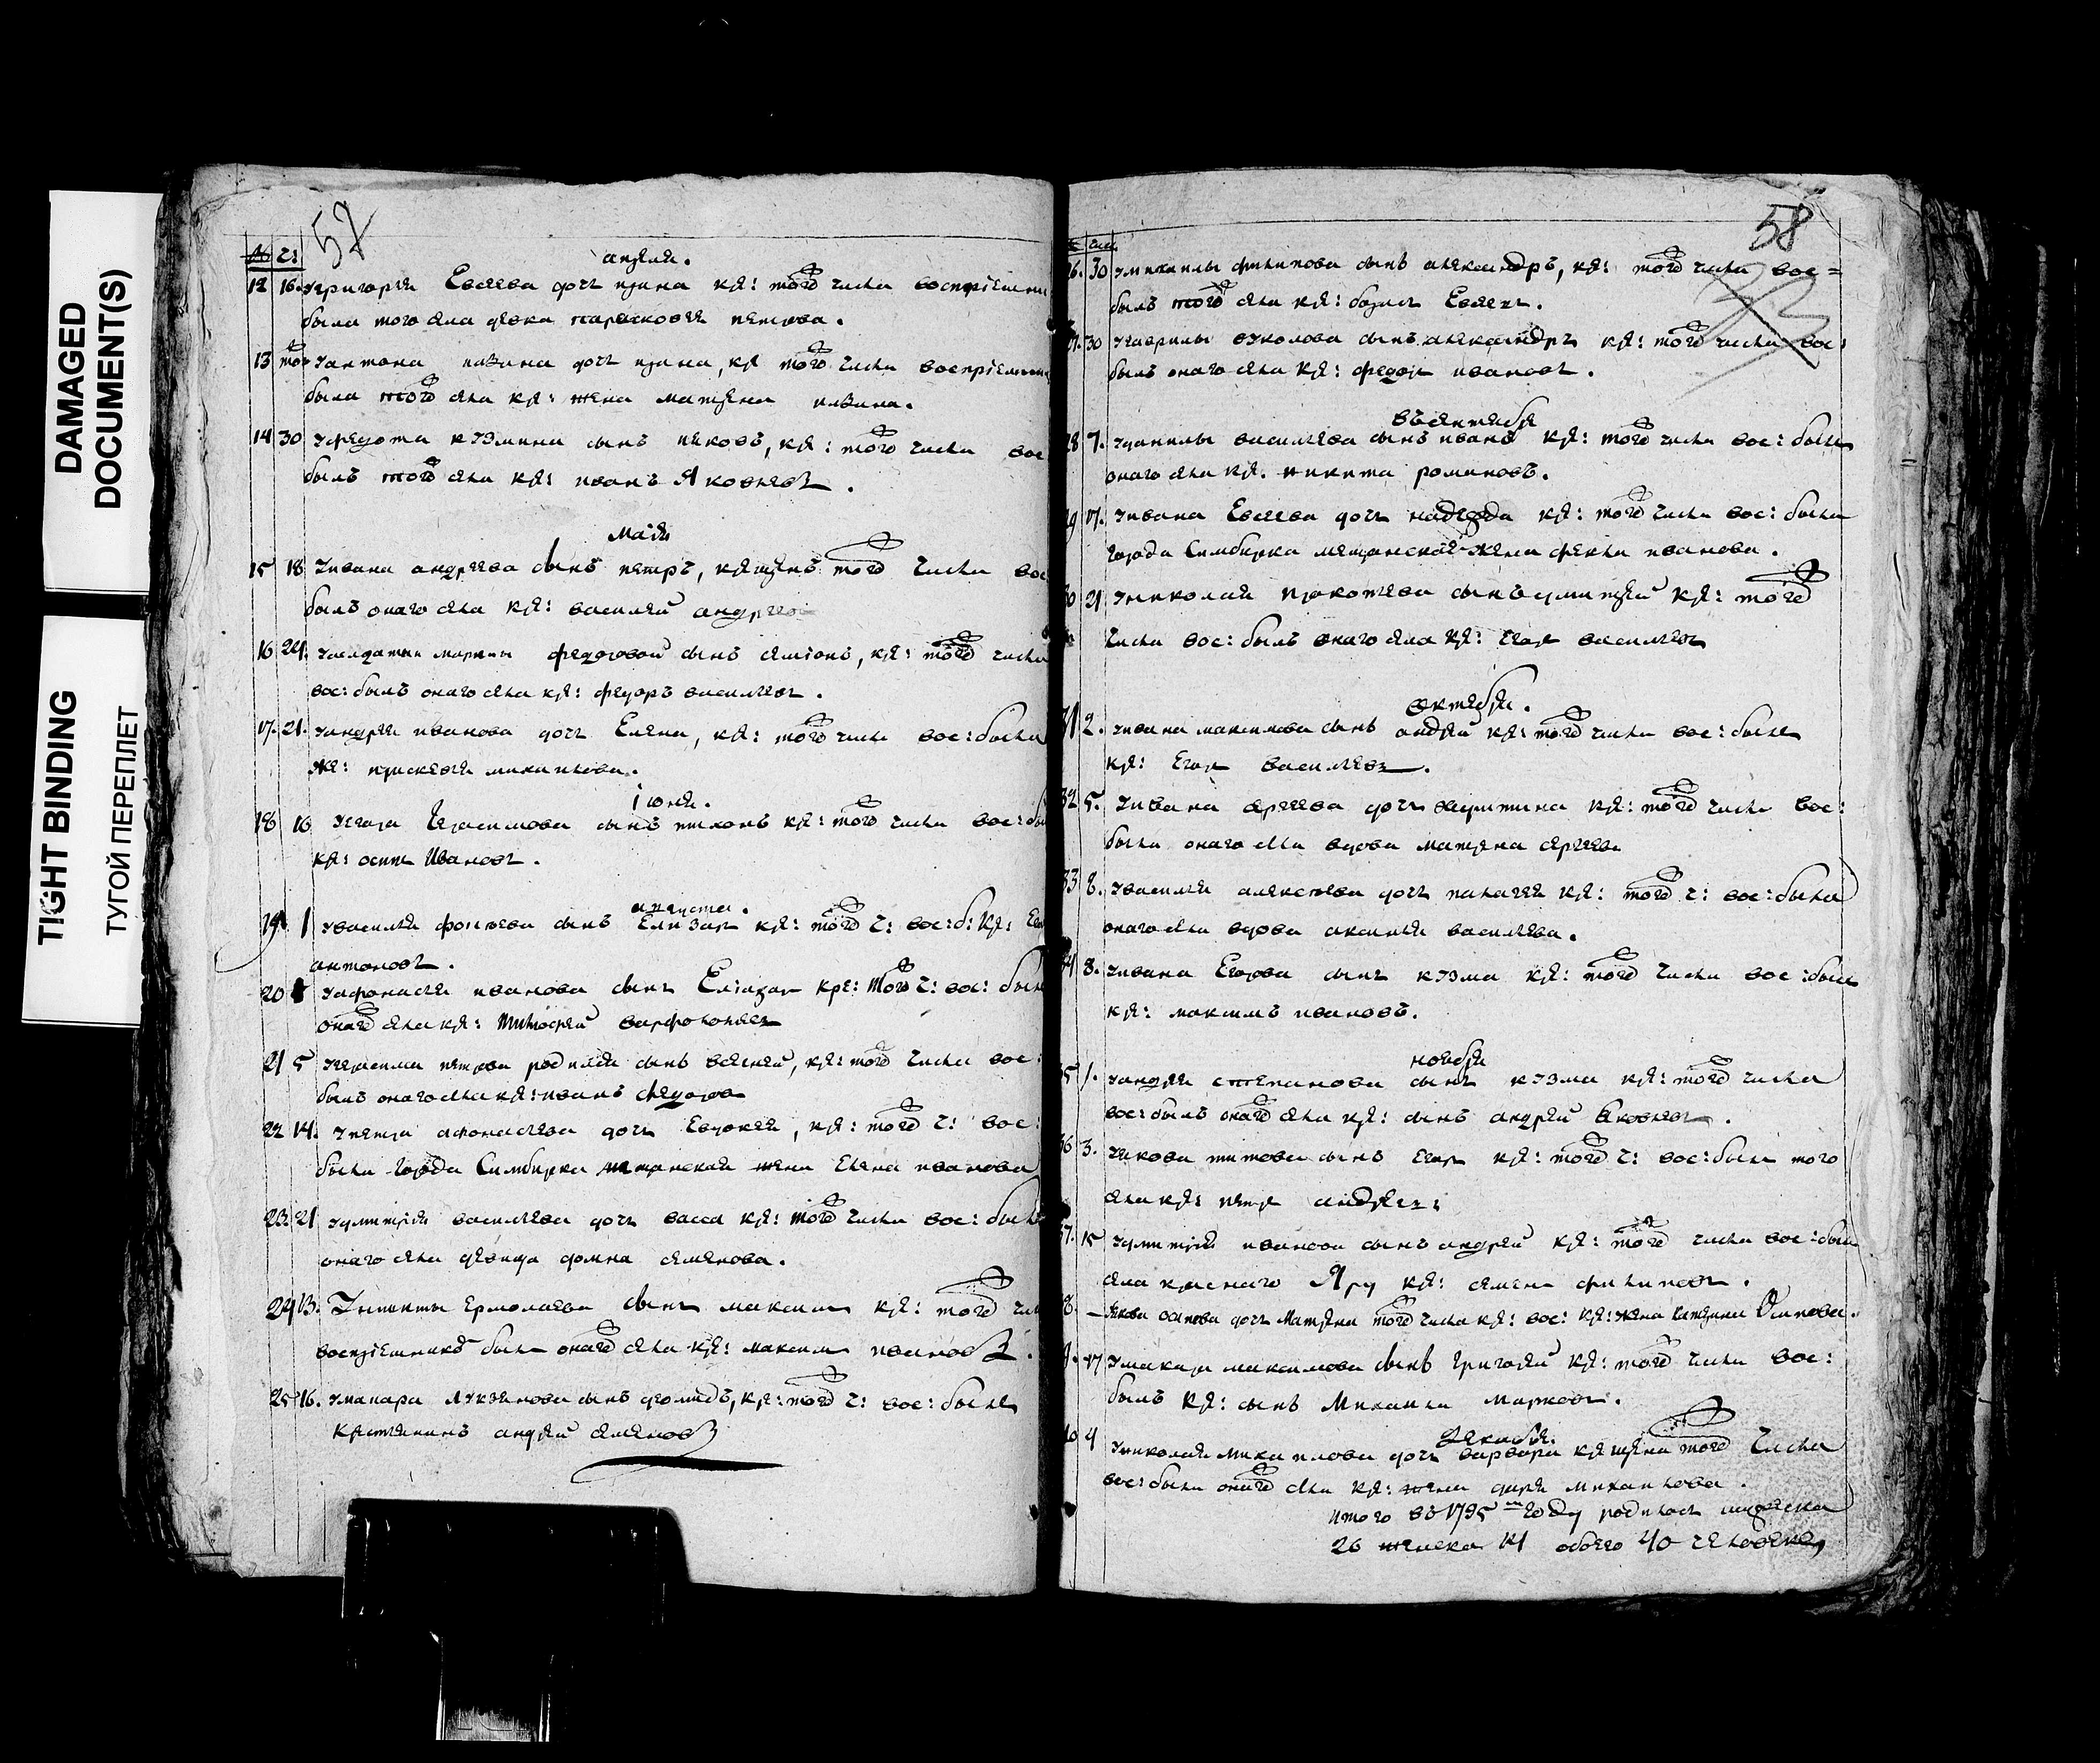 DAMAGED
DOCUMENT(S)
TIGHT BINDING
ТУГОЙ ПЕРЕПЛЕТ
52
№ Ч:
апреля.
12 16. У григорья Евсеева дочь ирина кре: того числа восприемни
была того села девка парасковея петрова.
13 того У антона дочь ирина, кре того числа восприемни
была того села кре: жена матрена
14 30 У федота кузмина сынъ яковъ, кре: того числа вос
былъ того села кре: иванъ Яковлевъ.
Маія
15 18 У ивана андреева сынъ петръ, крещенъ того числа вос
былъ онаго села кре: василей андреев
16 21. У салдатки марины федоровой сынъ семіонъ, кре: того числа
вос: былъ онаго села кре: федоръ васильевъ.
17. 21. У андрея иванова дочь Елена, кре: того числа вос: была
же: прасковья михаилова.
іюня.
18 16 У егора Герасимова сынъ тихонъ кре: того числа вос: бы
кре: осипъ Ивановъ.
августа.
19 1 У василья сынъ Елизар кре: того ч: вос: б: кре:
антоновъ.
20 У афонасья иванова сынъ Еліазар кре: того ч: вос: былъ
онаго села кре: тимофей варфоломеев
21 5 У герасима петрова родился сынъ евсевей, кре: того числа вос:
былъ онаго села кре: иванъ федоров
22 14. У петра афонасьева дочь Евдокея, кре: того ч: вос:
была города Симбирка мещанская жена Елена иванова
23 21 У дмитрія васильева дочь васса кре: того числа вос: была
онаго села девица домна семенова.
24 13. У никиты ермолаева сынъ максим кре: того чис
восприемникъ былъ онаго села кре: максим ивановъ.
25 16. У макара сынъ деомидъ, кре: того ч: вос: былъ
крестьянинъ андрей семеновъ
58
чис.
26. 30 У михаилы филипова сынъ александръ, кре: того числа вос=
былъ того села кре: борис Евсеев.
27. 30 У гаврилы вуколова сынъ александръ кре: того числа вос:
былъ онаго села кре: федор ивановъ.
въ сентября
28 7. У данилы васильева сынъ иванъ кре: того числа вос: былъ
онаго села кре. никита романовъ.
29 17. У ивана Евсеева дочь надежда кре: того числа вос: была
города Симбирка мещанской жена фекла иванова.
30 21 У николая прокофева сынъ дмитрей кре: того
числа вос: былъ онаго села кре: Егор васильев
октября.
31 2. У ивана максимова сынъ андрей кре: того числа вос: былъ
кре: Егор Васильевъ.
32 5. У ивана сергеева дочь харитина кре: того числа вос:
была онаго села вдова матрена сергеева
33 8. У василья алексеева дочь палагея кре: того ч: вос: была
онаго села вдова аксинья васильева.
34 8. У ивана Егорова сынъ кузма кре: того числа вос: былъ
кре: максимъ ивановъ.
ноября
35 1. У андрея степанова сынъ кузма кре: того числа
вос: былъ онаго села кре: сынъ андрей Яковлев.
36 3. У якова титова сынъ Егор кре: того ч: вос: былъ того
села кре: петр андреев:
37. 15 У дмитрія иванова сынъ андрей кре: того числа вос: был
села краснаго Яру кре: семен филиповъ.
38. — Якова осипова дочь Матрена того числа кре: вос: кре: жена катерина Осипова.
9. 17 У макара максимова сынъ Григорей кре: того числа вос:
былъ кре: сынъ Михаила Марковъ.
декабря.
40 4 У николая михаилова дочь варвара крещена того числа
вос: была онаго села кре: жена дарья михаилова.
Итого въ 1795м году родилось мужеска
26 женска 14 обоего 40 человекъ